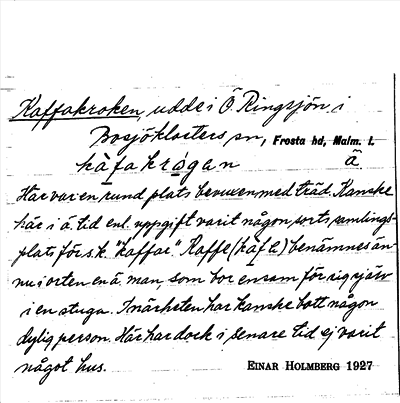 Kaffakroken, udde i Ö. Ringsjön i
Bosjöklosters sn, Frosta hd, Malm. l.
kàfakrógan ä
Här var en rund plats bevuxen med träd. Kanske
här i ä. tid enl. uppgift varit någon sorts samlings-
plats för s.k "kaffar". Kaffe (kàfə) benämnes än-
nu i orten en ä. man, som bor ensam för sig själv
i en stuga. I närheten har kanske bott någon
dylig person. Här har dock i senare tid ej varit
något hus. EINAR HOLMBERG 1927